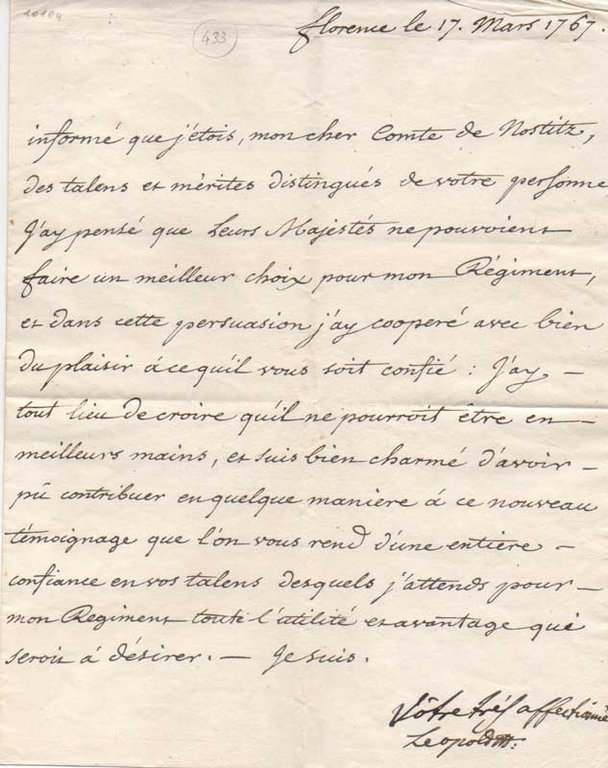 10104
433
florence le 17. Mars 1767.
informé que j'étois, mon cher Comte de Nostitz,
des talens et mérites distingués de votre personne
j'ay pensé que Leurs Majestés ne pouvoient
faire un meilleur choix pour mon Régiment,
et dans cette persuasion j'ay cooperé avec bien
du plaisir á ce qu'il vous soit confié : j'ay –
tout lieu de croire qu'il ne pourroit être en –
meilleurs mains, et suis bien charmé d'avoir –
pû contribuer en quelque maniere á ce nouveau
témoignage que l'on vous rend d'une entière –
confiance en vos talens desquels j'attends pour –
mon Regiment toute l'utilité et avantage qui
seroit á désirer. – Je suis.
Vôtre trés affectionné
Leopold